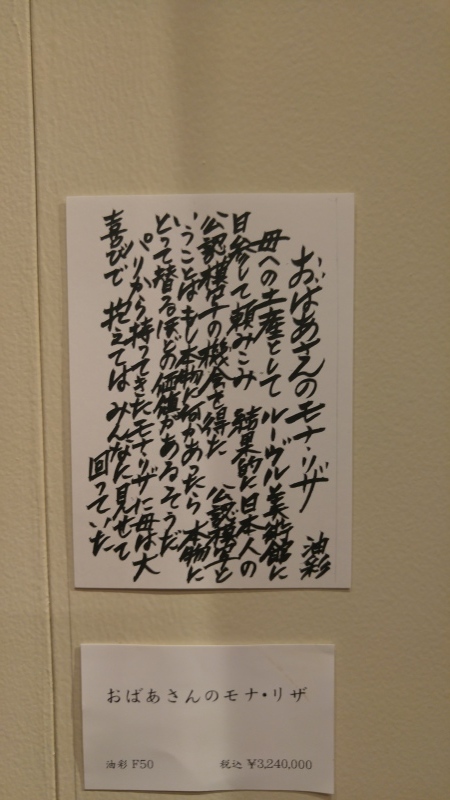 おばあさんのモナ・リザ 油彩
母への土産として ルーヴル美術館に
日参して頼みこみ 結果的に日本人の
公認模写の機会を得た 公認模写と
いうことはもし本物に何かあったら 本物に
とって替るほどの価値があるそうだ
パリから持ってきたモナ・リザに母は大
喜びで 抱えてはみんなに見せて
回っていた
おばあさんのモナ・リザ
油彩 F50 税込 ¥3,240,000